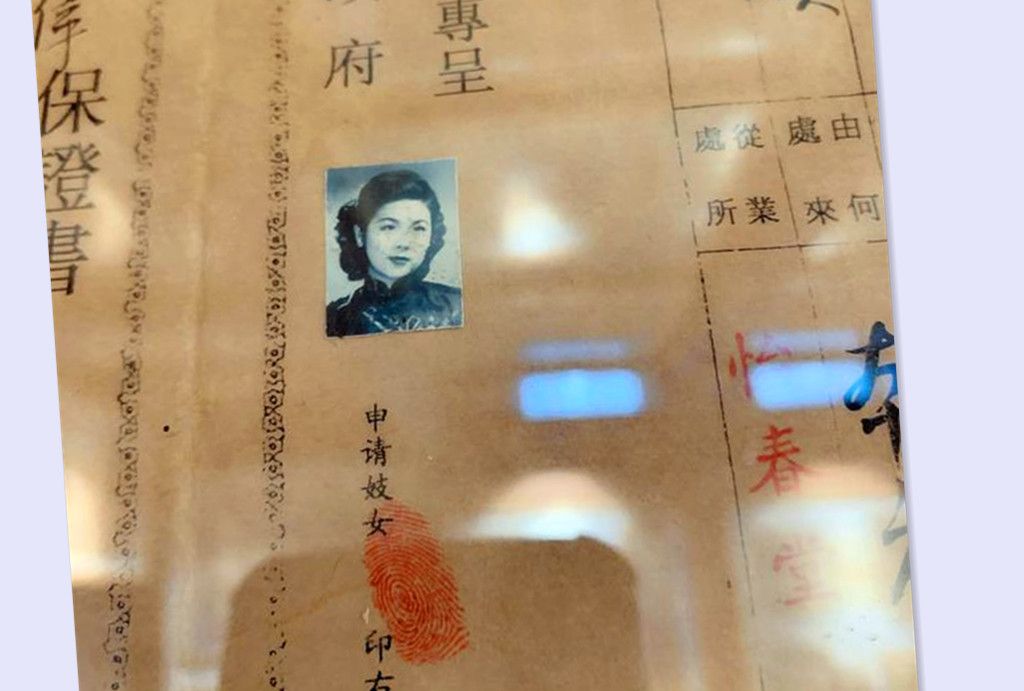 由何
處來
從業
處所
怡春堂
專呈
府
申请妓女
印右
保證書